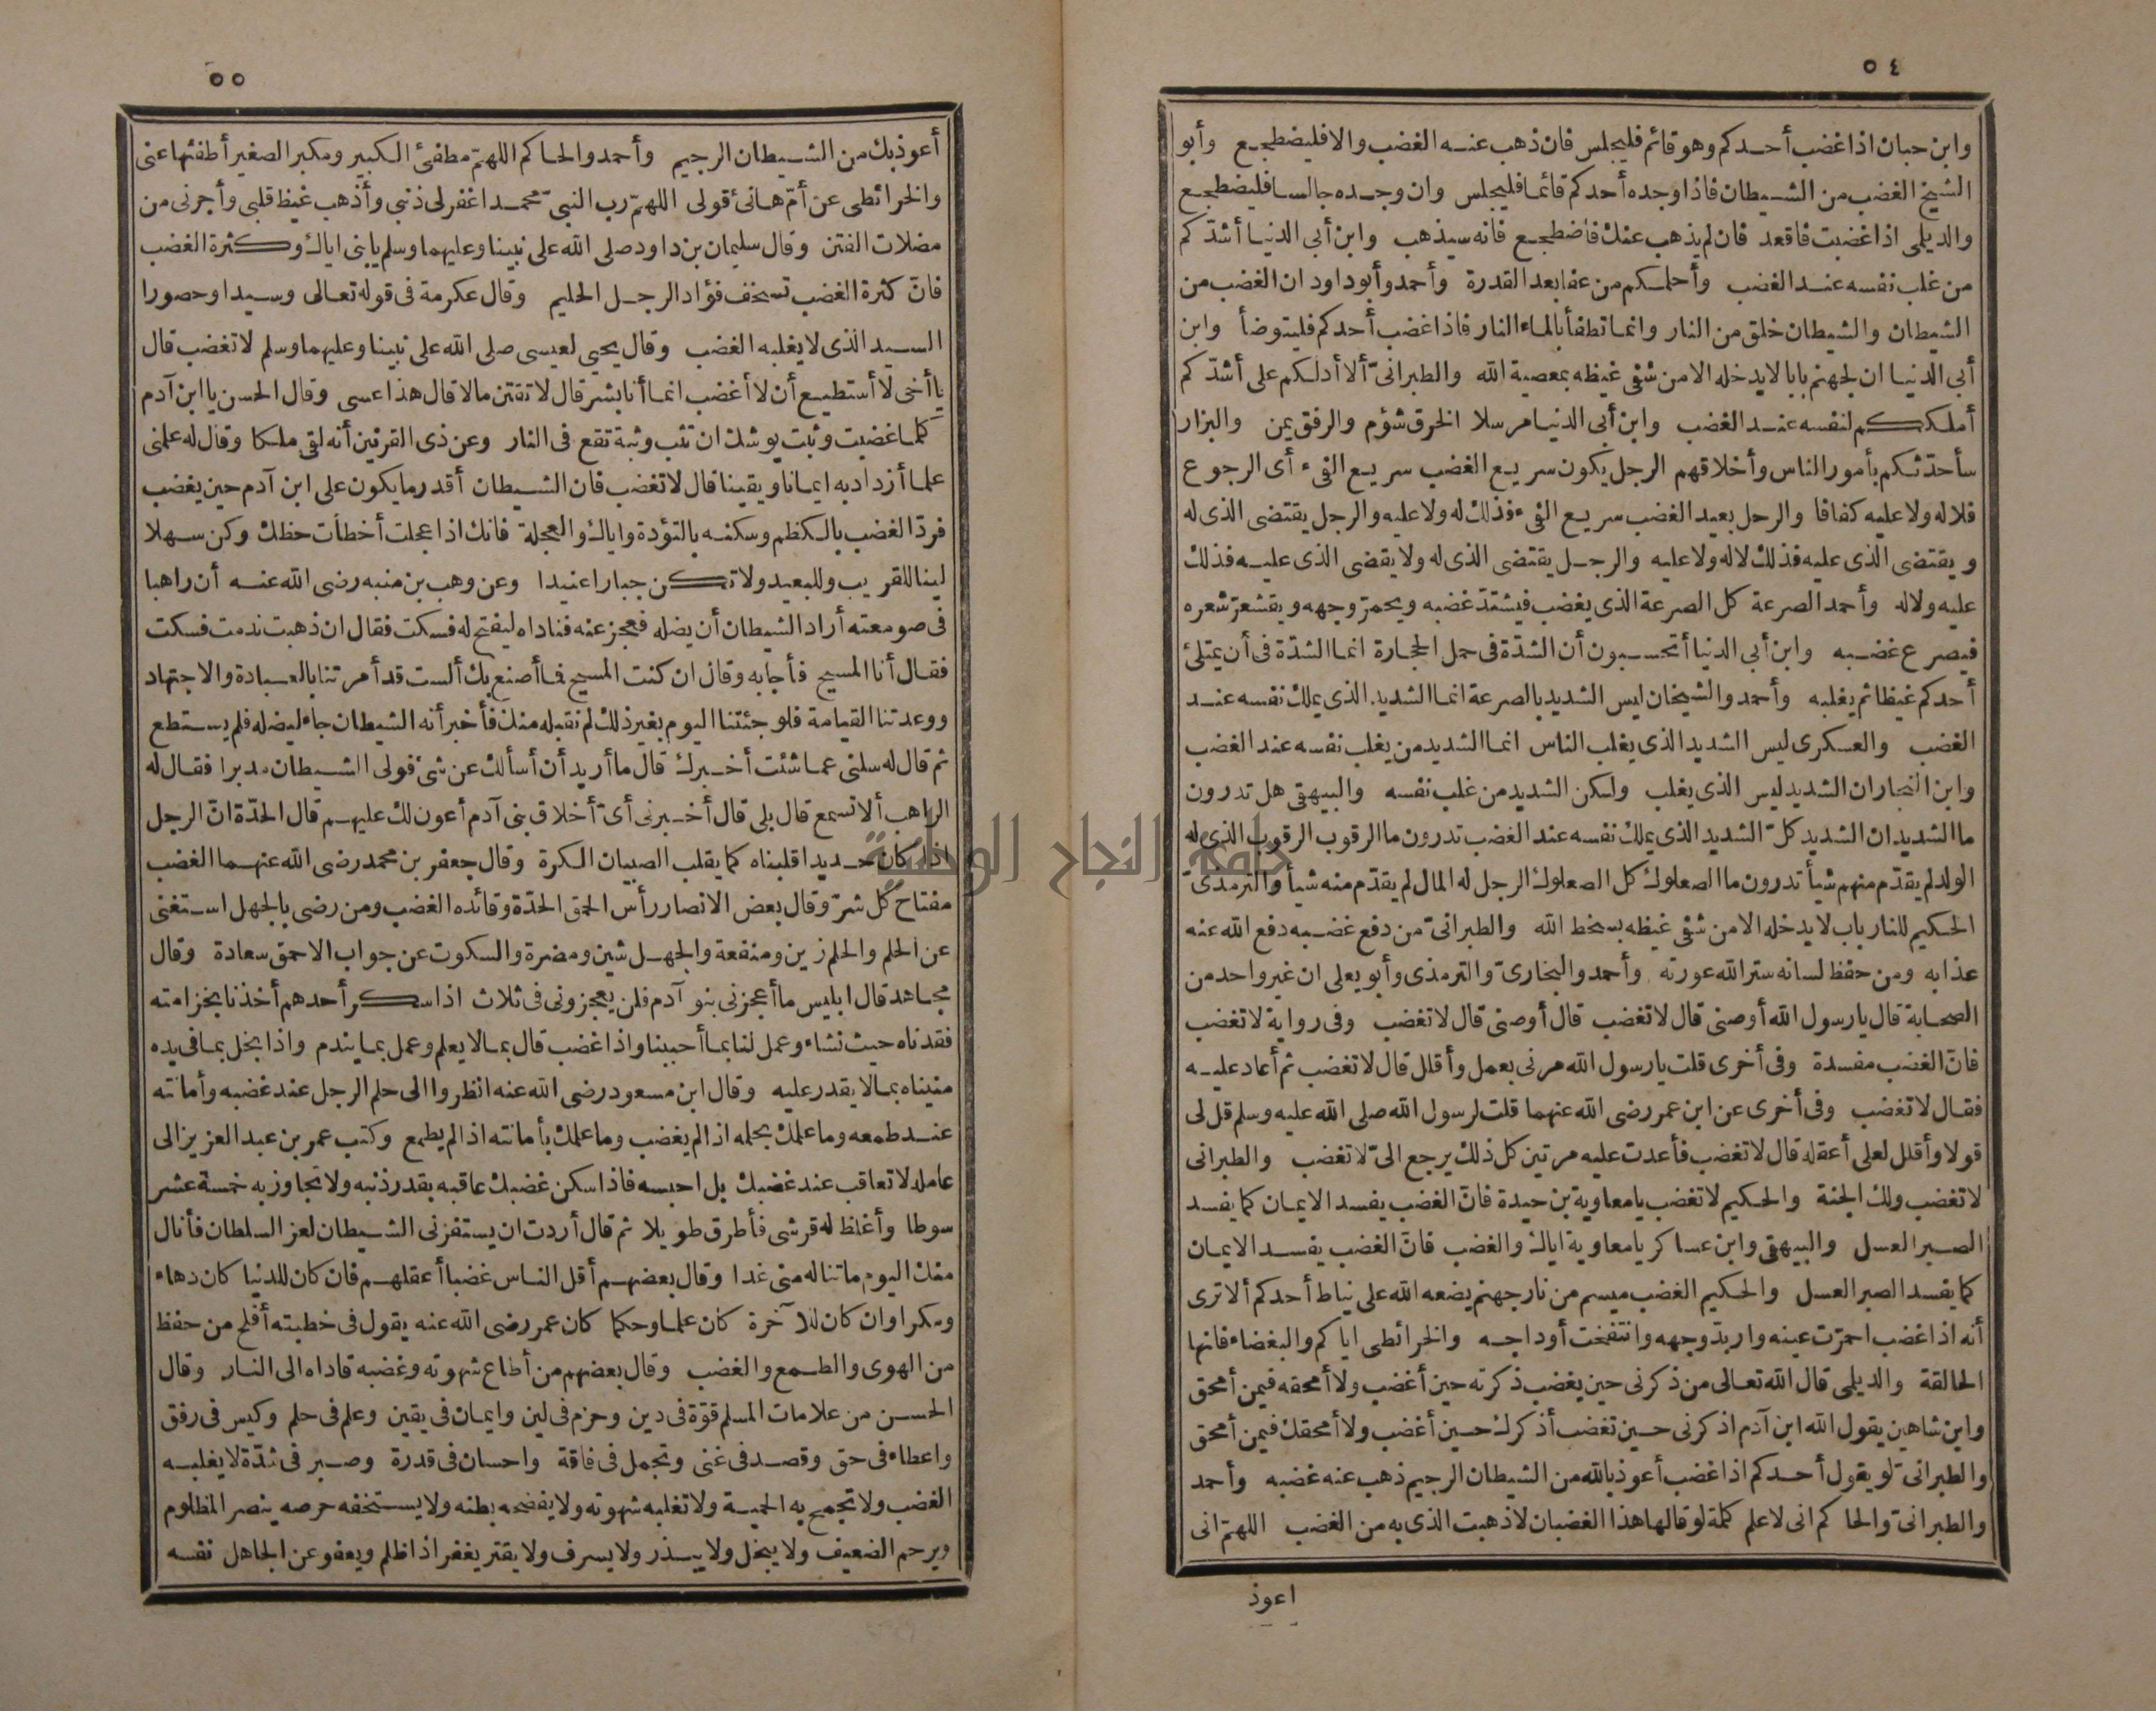 ٥٤
وابن حبان اذا غضب أحدكم وهو قائم فليجلس فان ذهب عنه الغضب والا فليضطجع وأبو
الشيخ الغضب من الشيطان فاذا وجده أحدكم قائما فليجلس وان وجده جالسا فليضطجع
والديلمى اذا غضبت فاقعد فان لم يذهب عنك فاضطجع فانه سيذهب وابن أبى الدنيا أشدّكم
من غلب نفسه عند الغضب وأحلمكم من عفا بعد القدرة وأحمد وأبو داود ان الغضب من
الشيطان والشيطان خلق من النار وانما تطفأ بالماء النار فاذا غضب أحدكم فليتوضأ وابن
أبى الدنيا ان لجهنم بابا لا يدخله الا من شفى غيظه بمعصية الله والطبرانىّ ألا أدلكم على أشدّكم
أملككم لنفسه عند الغضب وابن أبى الدنيا مرسلا الخرق شؤم والرفق يمن والبزار
سأحدّثكم بأمور الناس وأخلاقهم الرجل يكون سريع الغضب سريع الفىء أى الرجوع
فلا له ولا عليه كفافا والرجل بعيد الغضب سريع الفىء فذلك له ولا عليه والرجل يقتضى الذى له
ويقتضى الذى عليه فذلك لا له ولا عليه والرجل يقتضى الذى له ولا يقضى الذى عليه فذلك
عليه ولا له وأحمد الصرعة كل الصرعة الذى يغضب فيشتدّ غضبه ويحمرّ وجهه ويقشعرّ شعره
فيصرع غضبه وابن أبى الدنيا أتحسبون أن الشدّة فى حمل الحجارة انما الشدّة فى أن يمتلئ
أحدكم غيظا ثم يغلبه وأحمد والشيخان ليس الشديد بالصرعة انما الشديد الذى يملك نفسه عند
الغضب والعسكرى ليس الشديد الذى يغلب الناس انما الشديد من يغلب نفسه عند الغضب
وابن النجار ان الشديد ليس الذى يغلب ولكن الشديد من غلب نفسه والبيهقى هل تدرون
ما الشديد ان الشديد كلّ الشديد الذى يملك نفسه عند الغضب تدرون ما الرقوب الرقوب الذى له
الولد لم يقدّم منهم شيأ تدرون ما الصعلوك كل الصعلوك الرجل له المال لم يقدّم منه شيأ والترمذى
الحكيم للنار باب لا يدخله الا من شفى غيظه بسخط الله والطبرانىّ من دفع غضبه دفع الله عنه
عذابه ومن حفظ لسانه ستر الله عورته وأحمد والبخارىّ والترمذى وأبو يعلى ان غير واحد من
الصحابة قال يا رسول الله أوصنى قال لا تغضب قال أوصنى قال لا تغضب وفى رواية لا تغضب
فانّ الغضب مفسدة وفى أخرى قلت يا رسول الله مرنى بعمل وأقلل قال لا تغضب ثم أعاد عليه
فقال لا تغضب وفى أخرى عن ابن عمر رضى الله عنهما قلت لرسول الله صلى الله عليه وسلم قل لى
قولا وأقلل لعلى أعقله قال لا تغضب فأعدت عليه مرتين كل ذلك يرجع الىّ لا تغضب والطبرانى
لا تغضب ولك الجنة والحكيم لا تغضب يا معاوية بن حيدة فانّ الغضب يفسد الايمان كما يفسد
الصبر العسل والبيهقى وابن عساكر يا معاوية اياك والغضب فانّ الغضب يفسد الايمان
كما يفسد الصبر العسل والحكيم الغضب ميسم من نار جهنم يضعه الله على نياط أحدكم ألا ترى
أنه اذا غضب احمرّت عينه واربدّ وجهه وانتفخت أوداجه والخرائطى اياكم والبغضاء فانها
الحالقة والديلمى قال الله تعالى من ذكرنى حين يغضب ذكرته حين أغضب ولا أمحقه فيمن أمحق
وابن شاهين يقول الله ابن آدم اذكرنى حين تغضب أذكرك حين أغضب ولا أمحقك فيمن أمحق
والطبرانىّ لو يقول أحدكم اذا غضب أعوذ بالله من الشيطان الرجيم ذهب عنه غضبه وأحمد
والطبرانىّ والحاكم انى لاعلم كلمة لو قالها هذا الغضبان لاذهبت الذى به من الغضب اللهمّ انى
اعوذ
٥٥
أعوذ بك من الشيطان الرجيم وأحمد والحاكم اللهمّ مطفئ الكبير ومكبر الصغير أطفئها عنى
والخرائطى عن أمّ هانئ قولى اللهمّ رب النبىّ محمد اغفر لى ذنبى وأذهب غيظ قلبى وأجرنى من
مضلات الفتن وقال سليمان بن داود صلى الله على نبينا وعليهما وسلم يا بنى اياك وكثرة الغضب
فانّ كثرة الغضب تستخف فؤاد الرجل الحليم وقال عكرمة فى قوله تعالى وسيدا وحصورا
السيد الذى لا يغلبه الغضب وقال يحيى لعيسى صلى الله على نبينا وعليهما وسلم لا تغضب قال
يا أخى لا أستطيع أن لا أغضب انما أنا بشر قال لا تقتن مالا قال هذا عسى وقال الحسن يا ابن آدم
كلما غضبت وثبت يوشك ان تثب وثبة تقع فى النار وعن ذى القرنين أنه لقى ملكا وقال له علمنى
علما أزداد به ايمانا ويقينا قال لا تغضب فان الشيطان أقدر ما يكون على ابن آدم حين يغضب
فردّ الغضب بالكظم وسكنه بالتؤدة واياك والعجلة فانك اذا عجلت أخطأت حظك وكن سهلا
لينا للقريب وللبعيد ولا تكن جبارا عنيدا وعن وهب بن منبه رضى الله عنه أن راهبا
فى صومعته أراد الشيطان أن يضله فعجز عنه فناداه ليفتح له فسكت فقال ان ذهبت ندمت فسكت
فقال أنا المسيح فأجابه وقال ان كنت المسيح فما أصنع بك ألست قد أمرتنا بالعبادة والاجتهاد
ووعدتنا القيامة فلو جئتنا اليوم بغير ذلك لم نقبله منك فأخبر أنه الشيطان جاء ليضله فلم يستطع
ثم قال له سلنى عما شئت أخبرك قال ما أريد أن أسألك عن شئ فولى الشيطان مدبرا فقال له
الراهب ألا تسمع قال بلى قال أخبرنى أىّ أخلاق بنى آدم أعون لك عليهم قال الحدّة انّ الرجل
اذا كان حديدا قلبناه كما يقلب الصبيان الكرة وقال جعفر بن محمد رضى الله عنهما الغضب
مفتاح كل شرّ وقال بعض الانصار رأس الحمق الحدّة وقائده الغضب ومن رضى بالجهل استغنى
عن الحلم والحلم زين ومنفعة والجهل شين ومضرة والسكوت عن جواب الاحمق سعادة وقال
مجاهد قال ابليس ما أعجزنى بنو آدم فلن يعجزونى فى ثلاث اذا سكر أحدهم أخذنا بخزامته
فقدناه حيث نشاء وعمل لنا بما أحببنا واذا غضب قال بما لا يعلم وعمل بما يندم واذا بخل بما فى يده
منيناه بما لا يقدر عليه وقال ابن مسعود رضى الله عنه انظروا الى حلم الرجل عند غضبه وأمانته
عند طمعه وما علمك بحلمه اذا لم يغضب وما علمك بأمانته اذا لم يطمع وكتب عمر بن عبد العزيز الى
عامله لا تعاقب عند غضبك بل احبسه فاذا سكن غضبك عاقبه بقدر ذنبه ولا تجاوز به خمسة عشر
سوطا وأغلظ له قرشى فأطرق طويلا ثم قال أردت ان يستفزنى الشيطان لعز السلطان فأنال
منك اليوم ما تناله منى غدا وقال بعضهم أقل الناس غضبا أعقلهم فان كان للدنيا كان دهاء
ومكرا وان كان للآخرة كان علما وحكما كان عمر رضى الله عنه يقول فى خطبته أفلح من حفظ
من الهوى والطمع والغضب وقال بعضهم من أطاع شهوته وغضبه قاداه الى النار وقال
الحسن من علامات المسلم قوّة فى دين وحزم فى لين وايمان فى يقين وعلم فى حلم وكيس فى رفق
واعطاء فى حق وقصد فى غنى وتجمل فى فاقة واحسان فى قدرة وصبر فى شدّة لا يغلبه
الغضب ولا تجمح به الحمية ولا تغلبه شهوته ولا يفضحه بطنه ولا يستخفه حرصه ينصر المظلوم
ويرحم الضعيف ولا يبخل ولا يبذر ولا يسرف ولا يقتر يغفر اذا ظلم ويعفو عن الجاهل نفسه
جامعة النجاح الوطنية